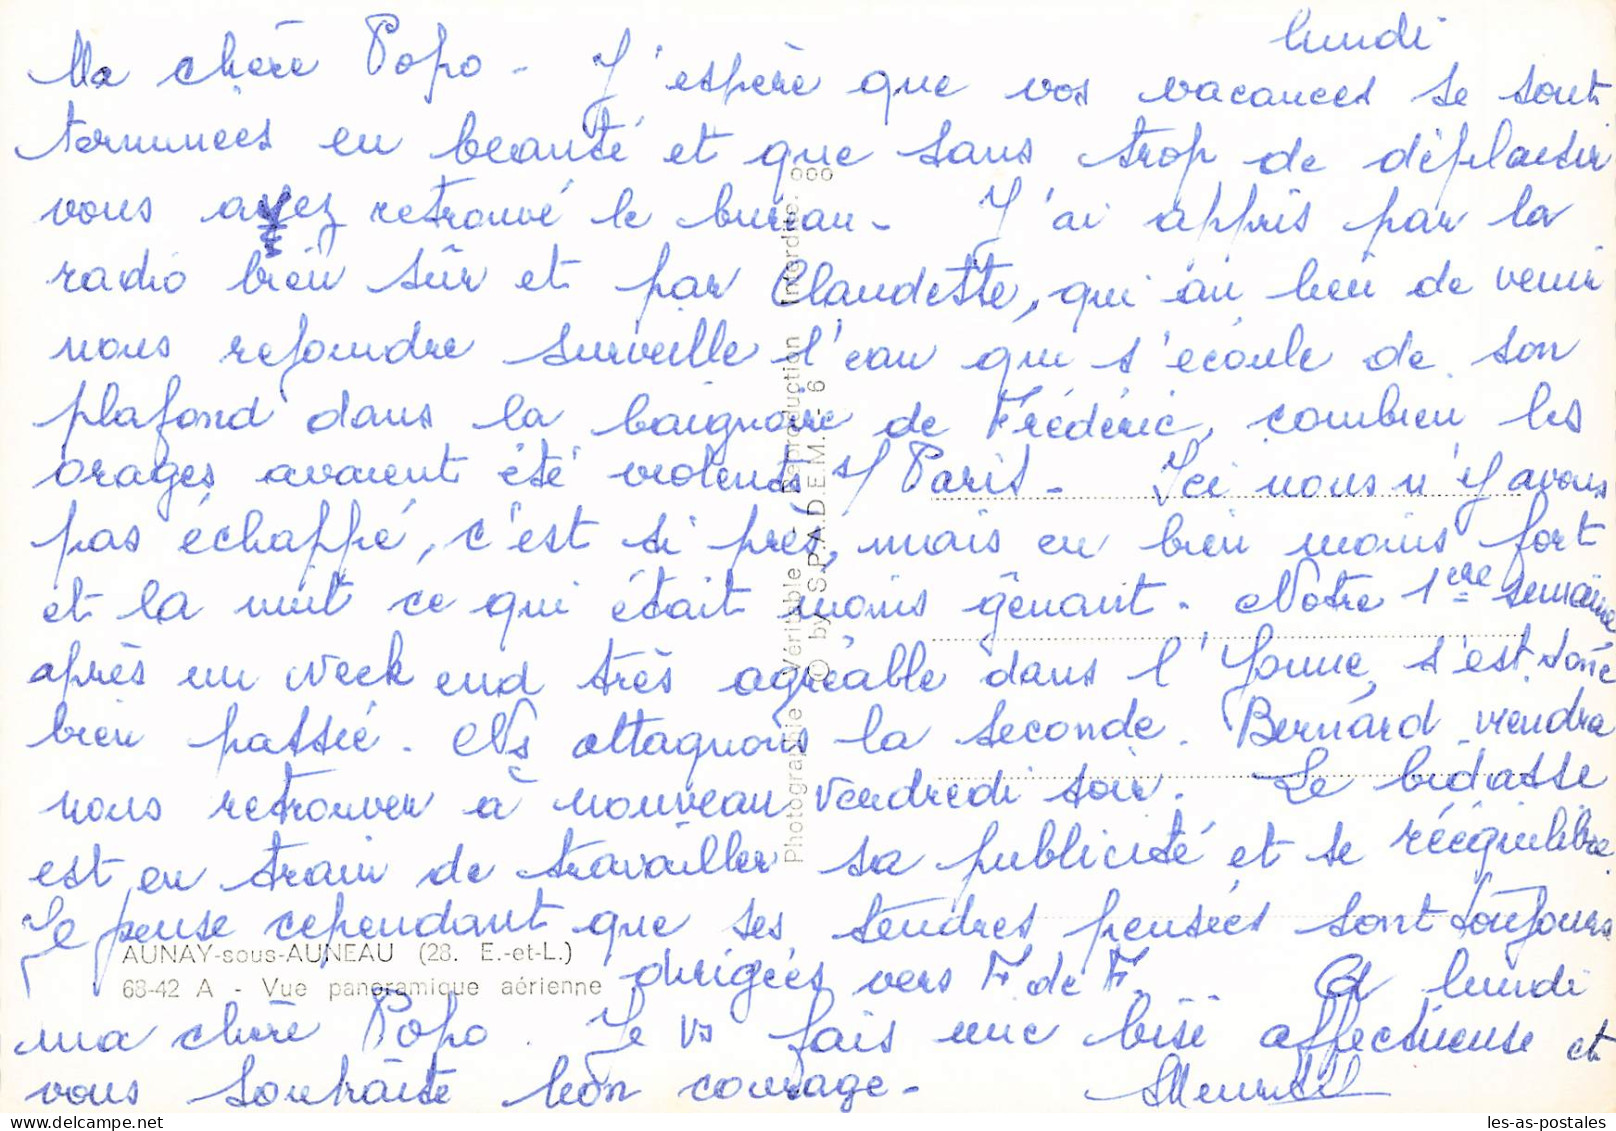 lundi
Ma chère Popo - J'espère que vos vacances se sont
terminées en beauté et que sans trop de déplaisir
vous avez retrouvé le bureau - J'ai appris par la
radio bien sûr et par Claudette, qui au lieu de venir
nous rejoindre surveille l'eau qui s'écoule de son
plafond dans la baignoire de Frédéric, combien les
orages avaient été violents s/ Paris - Ici nous n'y avons
pas échappé, c'est si près, mais en bien moins fort
et la nuit ce qui était moins gênant. Notre 1ère semaine
après un week end très agréable dans l'Yonne, s'est donc
bien passée. Ns attaquons la seconde. Bernard viendra
nous retrouver à nouveau vendredi soir. Le bidasse
est en train de travailler sa publicité et se rééquilibre.
Je pense cependant que ses tendres pensées sont toujours
dirigées vers F. de F. A lundi
ma chère Popo. Je vs fais une bise affectueuse et
vous souhaite bon courage -
AUNAY-sous-AUNEAU (28. E.-et-L.)
68-42 A - Vue panoramique aérienne
Photographie Véritable - Reproduction Interdite. 8
© by S.P.A.D.E.M. - 6 8
les-as-postales